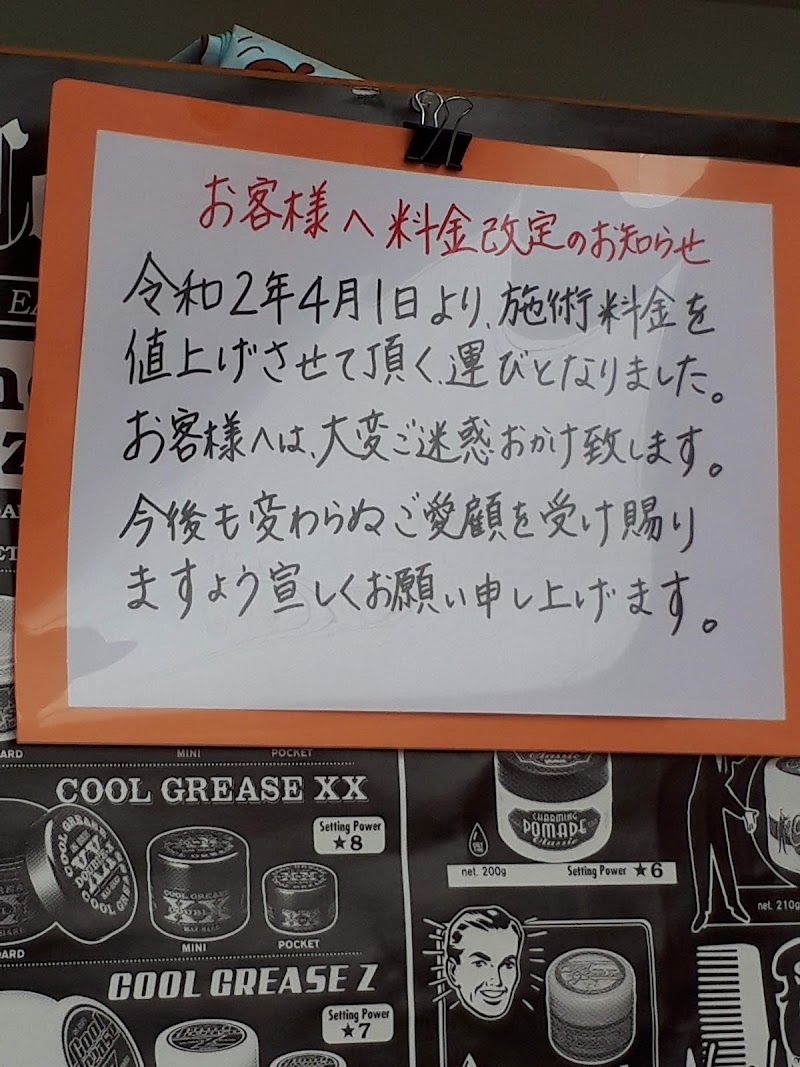 お客様へ 料金改定のお知らせ
令和2年4月1日より、施術料金を
値上げさせて頂く、運びとなりました。
お客様へは、大変ご迷惑おかけ致します。
今後も変わらぬご愛顧を受け賜り
ますよう宣しくお願い申し上げます。
MINI
POCKET
COOL GREASE XX
Setting Power
★8
COOL GREASE
XX
MINI
POCKET
COOL GREASE Z
Setting Power
★7
CHARMING
POMADE
Classic
net. 200g
Setting Power ★6
net. 210g